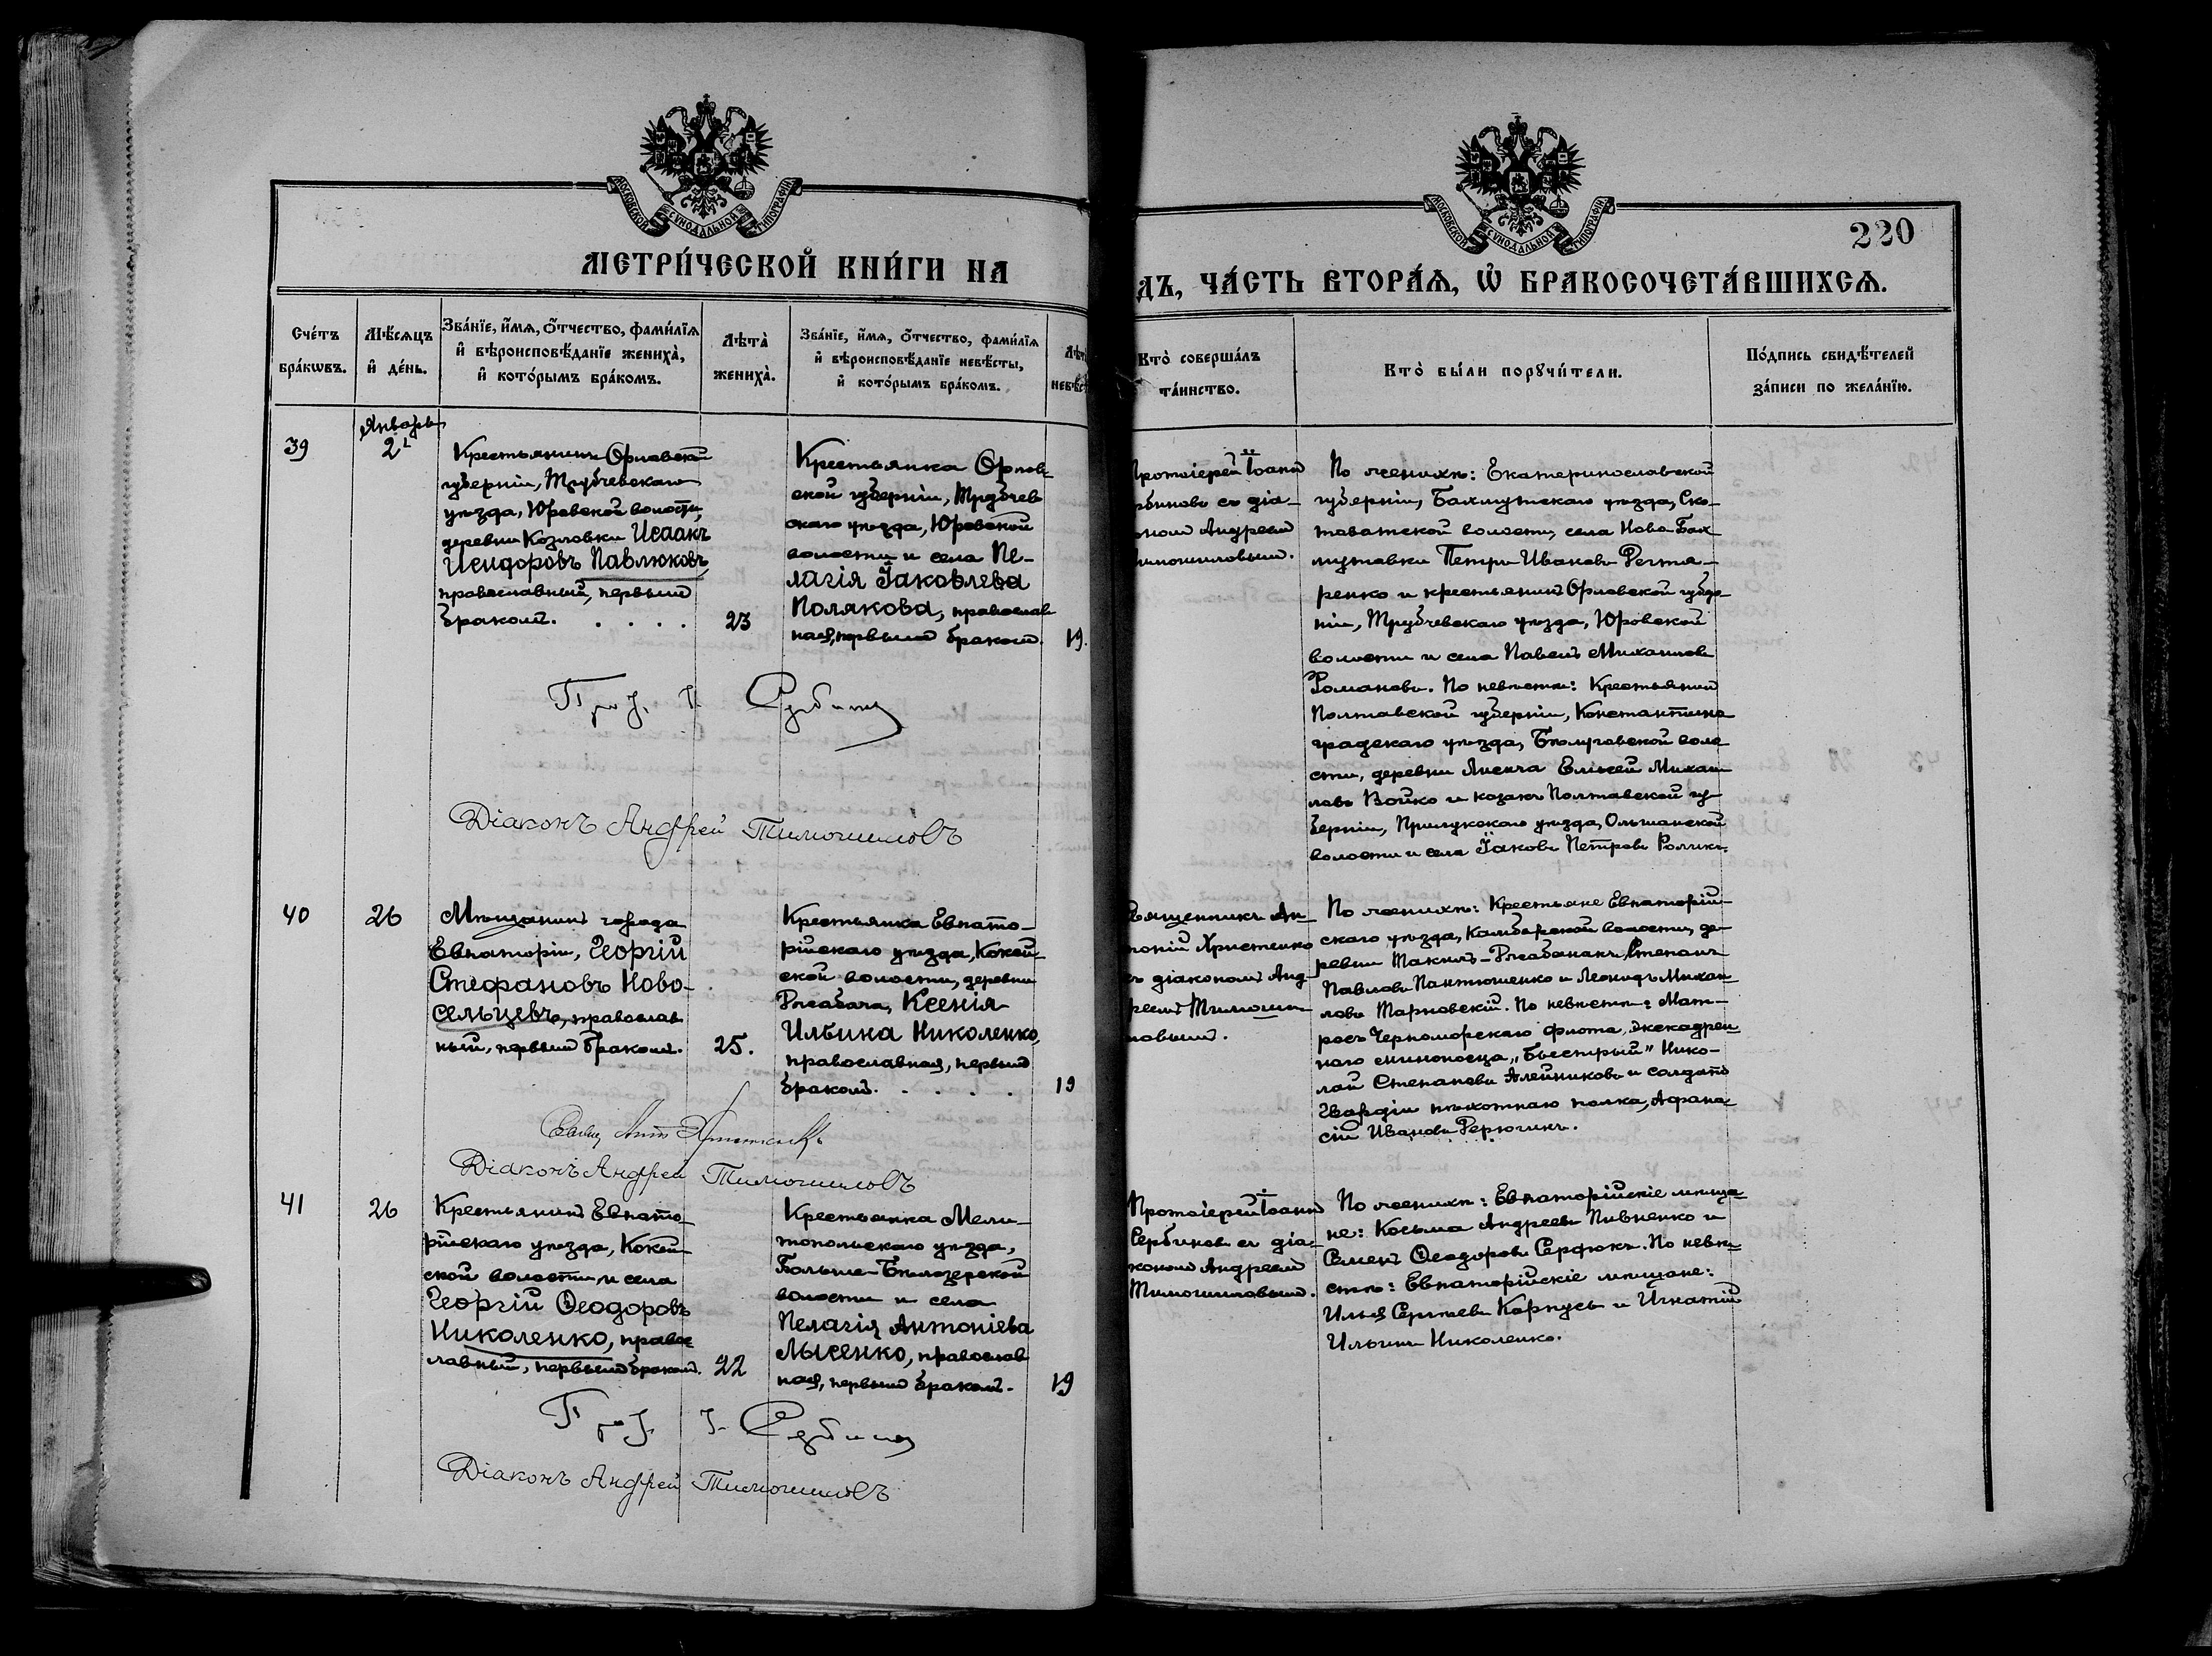 МОСКОВСКОЙ СѴНОДАЛЬНОЙ ТИПОГРАФІИ
МОСКОВСКОЙ СѴНОДАЛЬНОЙ ТИПОГРАФІИ
220
МЕТРИ́ЧЕСКОЙ КНИ́ГИ НА
ДЪ, ЧА́СТЬ ВТОРА́Я, Ѡ҆ БРАКОСОЧЕТА́ВШИХСЯ.
Сче́тъ
бра́кѡвъ.
Мѣ́сяцъ
и҆ де́нь.
Зва́нїе, и҆́мя, ѻ҆́тчество, фами́лїя
и҆ вѣроисповѣ́данїе жениха̀,
и҆ кото́рымъ бра́комъ.
Лѣта̀
жениха̀.
Зва́нїе, и҆́мя, ѻ҆́тчество, фами́лїя
и҆ вѣроисповѣ́данїе невѣ́сты,
и҆ кото́рымъ бра́комъ.
Лѣт
невѣс
Кто̀ соверша́лъ
та́инство.
Кто̀ бы́ли порꙋчи́тели.
По́дпись свидѣ́телей
за́писи по жела́нїю.
39
Январь
Крестьянинъ Орловской
губерніи, Трубчевскаго
уѣзда, Юровской волости,
деревни Козловки Исаакъ
Исидоровъ Павлюковъ,
православный, первымъ
бракомъ. . . . .
23
Крестьянка Орлов-
ской губерніи, Трубчев
скаго уѣзда, Юровской
волости и села Пе-
лагія Іаковлева
Полякова, православ
ная, первымъ бракомъ.
19.
Протоіерей Іоаннъ
рбиновъ съ діа-
ономъ Андреемъ
имошиловымъ.
По женихѣ: Екатеринославской
губерніи, Бахмутскаго уѣзда, Ско-
товатской волости, села Ново-Бах
мутовки Петръ Ивановъ
ренко и крестьянинъ Орловской губер
ніи, Трубчевскаго уѣзда, Юровской
волости и села Павелъ Михаиловъ
Романовъ. По невѣстѣ: Крестьянинъ
Полтавской губерніи, Константино
градскаго уѣзда, воло
сти, деревни Елисей Михаи
ловъ Бойко и козакъ Полтавской гу-
берніи, Прилукскаго уѣзда, Ольшанской
волости и села Іаковъ Петровъ
Прот. І. Сербиновъ
Діаконъ Андрей Тимошиловъ
40
26
Мѣщанинъ города
Евпаторіи, Георгій
Стефановъ Ново-
сельцевъ, православ
ный, первымъ бракомъ.
25.
Крестьянка Евпато-
рійскаго уѣзда, Кокей-
ской волости, деревни
Ксенія
Ильина Николенко,
православная, первымъ
бракомъ. . . . .
19
вященникъ Ан-
тоній Христенко
съ діакономъ Анд
реемъ Тимоши-
ловымъ.
По женихѣ: Крестьяне Евпаторій-
скаго уѣзда, Камбарской волости, де-
ревни Степанъ
Павловъ Пантюшенко и Леонидъ Михаи-
ловъ Тарновскій. По невѣстѣ: Мат-
росъ Черноморскаго флота, эскадрен
наго миноносца „Быстрый" Нико-
лай Степановъ Алейниковъ и солдатъ
Гвардіи пѣхотнаго полка, Афана-
сій Ивановъ
Свящ. Ант. Христенко
Діаконъ Андрей Тимошиловъ
41
26
Крестьянинъ Евпато-
рійскаго уѣзда, Кокей-
ской волости и села
Георгій Ѳеодоровъ
Николенко, правос
лавный, первымъ бракомъ.
22
Крестьянка Мели-
топольскаго уѣзда,
Больше-Бѣлозерской
волости и села
Пелагія Антоніева
Лысенко, православ
ная, первымъ бракомъ.
19
Протоіерей Іоаннъ
Сербиновъ съ діа-
кономъ Андреемъ
Тимошиловымъ.
По женихѣ: Евпаторійскіе мѣща-
не: Косьма Андреевъ Пивненко и
Семенъ Ѳеодоровъ Сердюкъ. По невѣ-
стѣ: Евпаторійскіе мѣщане:
Илья Сергѣевъ Корпусь и Игнатій
Ильинъ Николенко.
Прот. І. Сербиновъ
Діаконъ Андрей Тимошиловъ